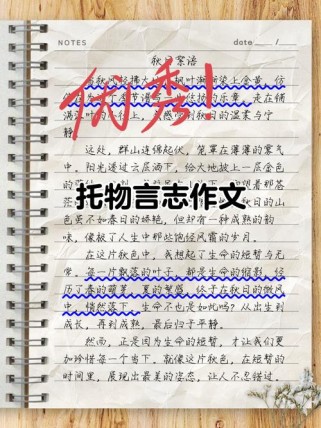 NOTES date / /
秋日絮语
优秀!
满落叶的小径上,感受到秋日的温柔与宁
静。
这处,群山连绵起伏,笼罩在薄薄的雾气
中。阳光透过云层洒下,给大地披上一层金色
托物言志作文
秋日的山
色虽不如春日的娇艳,但却有一种成熟的韵
味,像极了人生中那些饱经风霜的岁月。
在这片秋色中,我想起了生命的短暂与无
常。每一片飘落的叶子,都是生命的缩影,经
历了春的萌芽、夏的繁盛,终于在秋日的微风
中,悄然落下。生命不也是如此吗?从出生到
成长,再到成熟,最后归于平静。
然而,正是因为生命的短暂,才让我们更
加珍惜每一个当下。就像这片秋色,在短暂的
时间里,展现出最美的姿态,让人不忍错过。